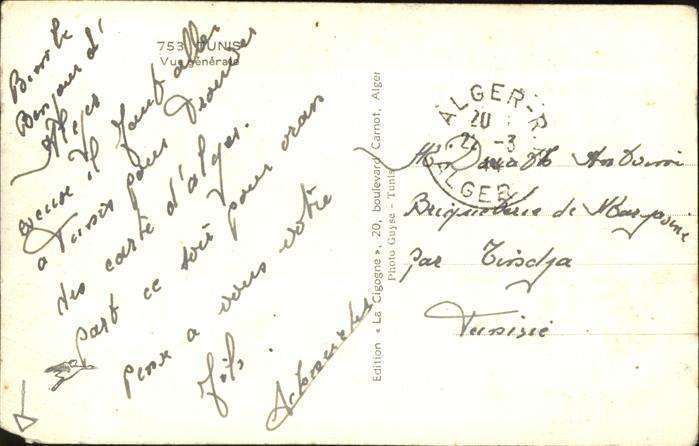 753 TUNIS
Vue générale
Bien le
Bonjour d'
Alger
il faut aller
a Tunis pour trouver
des carte d'alger.
part ce soir pour oran
pense a vous votre
fils.
Edition « La Cigogne », 20, boulevard Carnot, Alger
Photo Guyse - Tunis
ALGER-R.
20
-3
ALGER
Briqueterie de
par Tindja
Tunisie